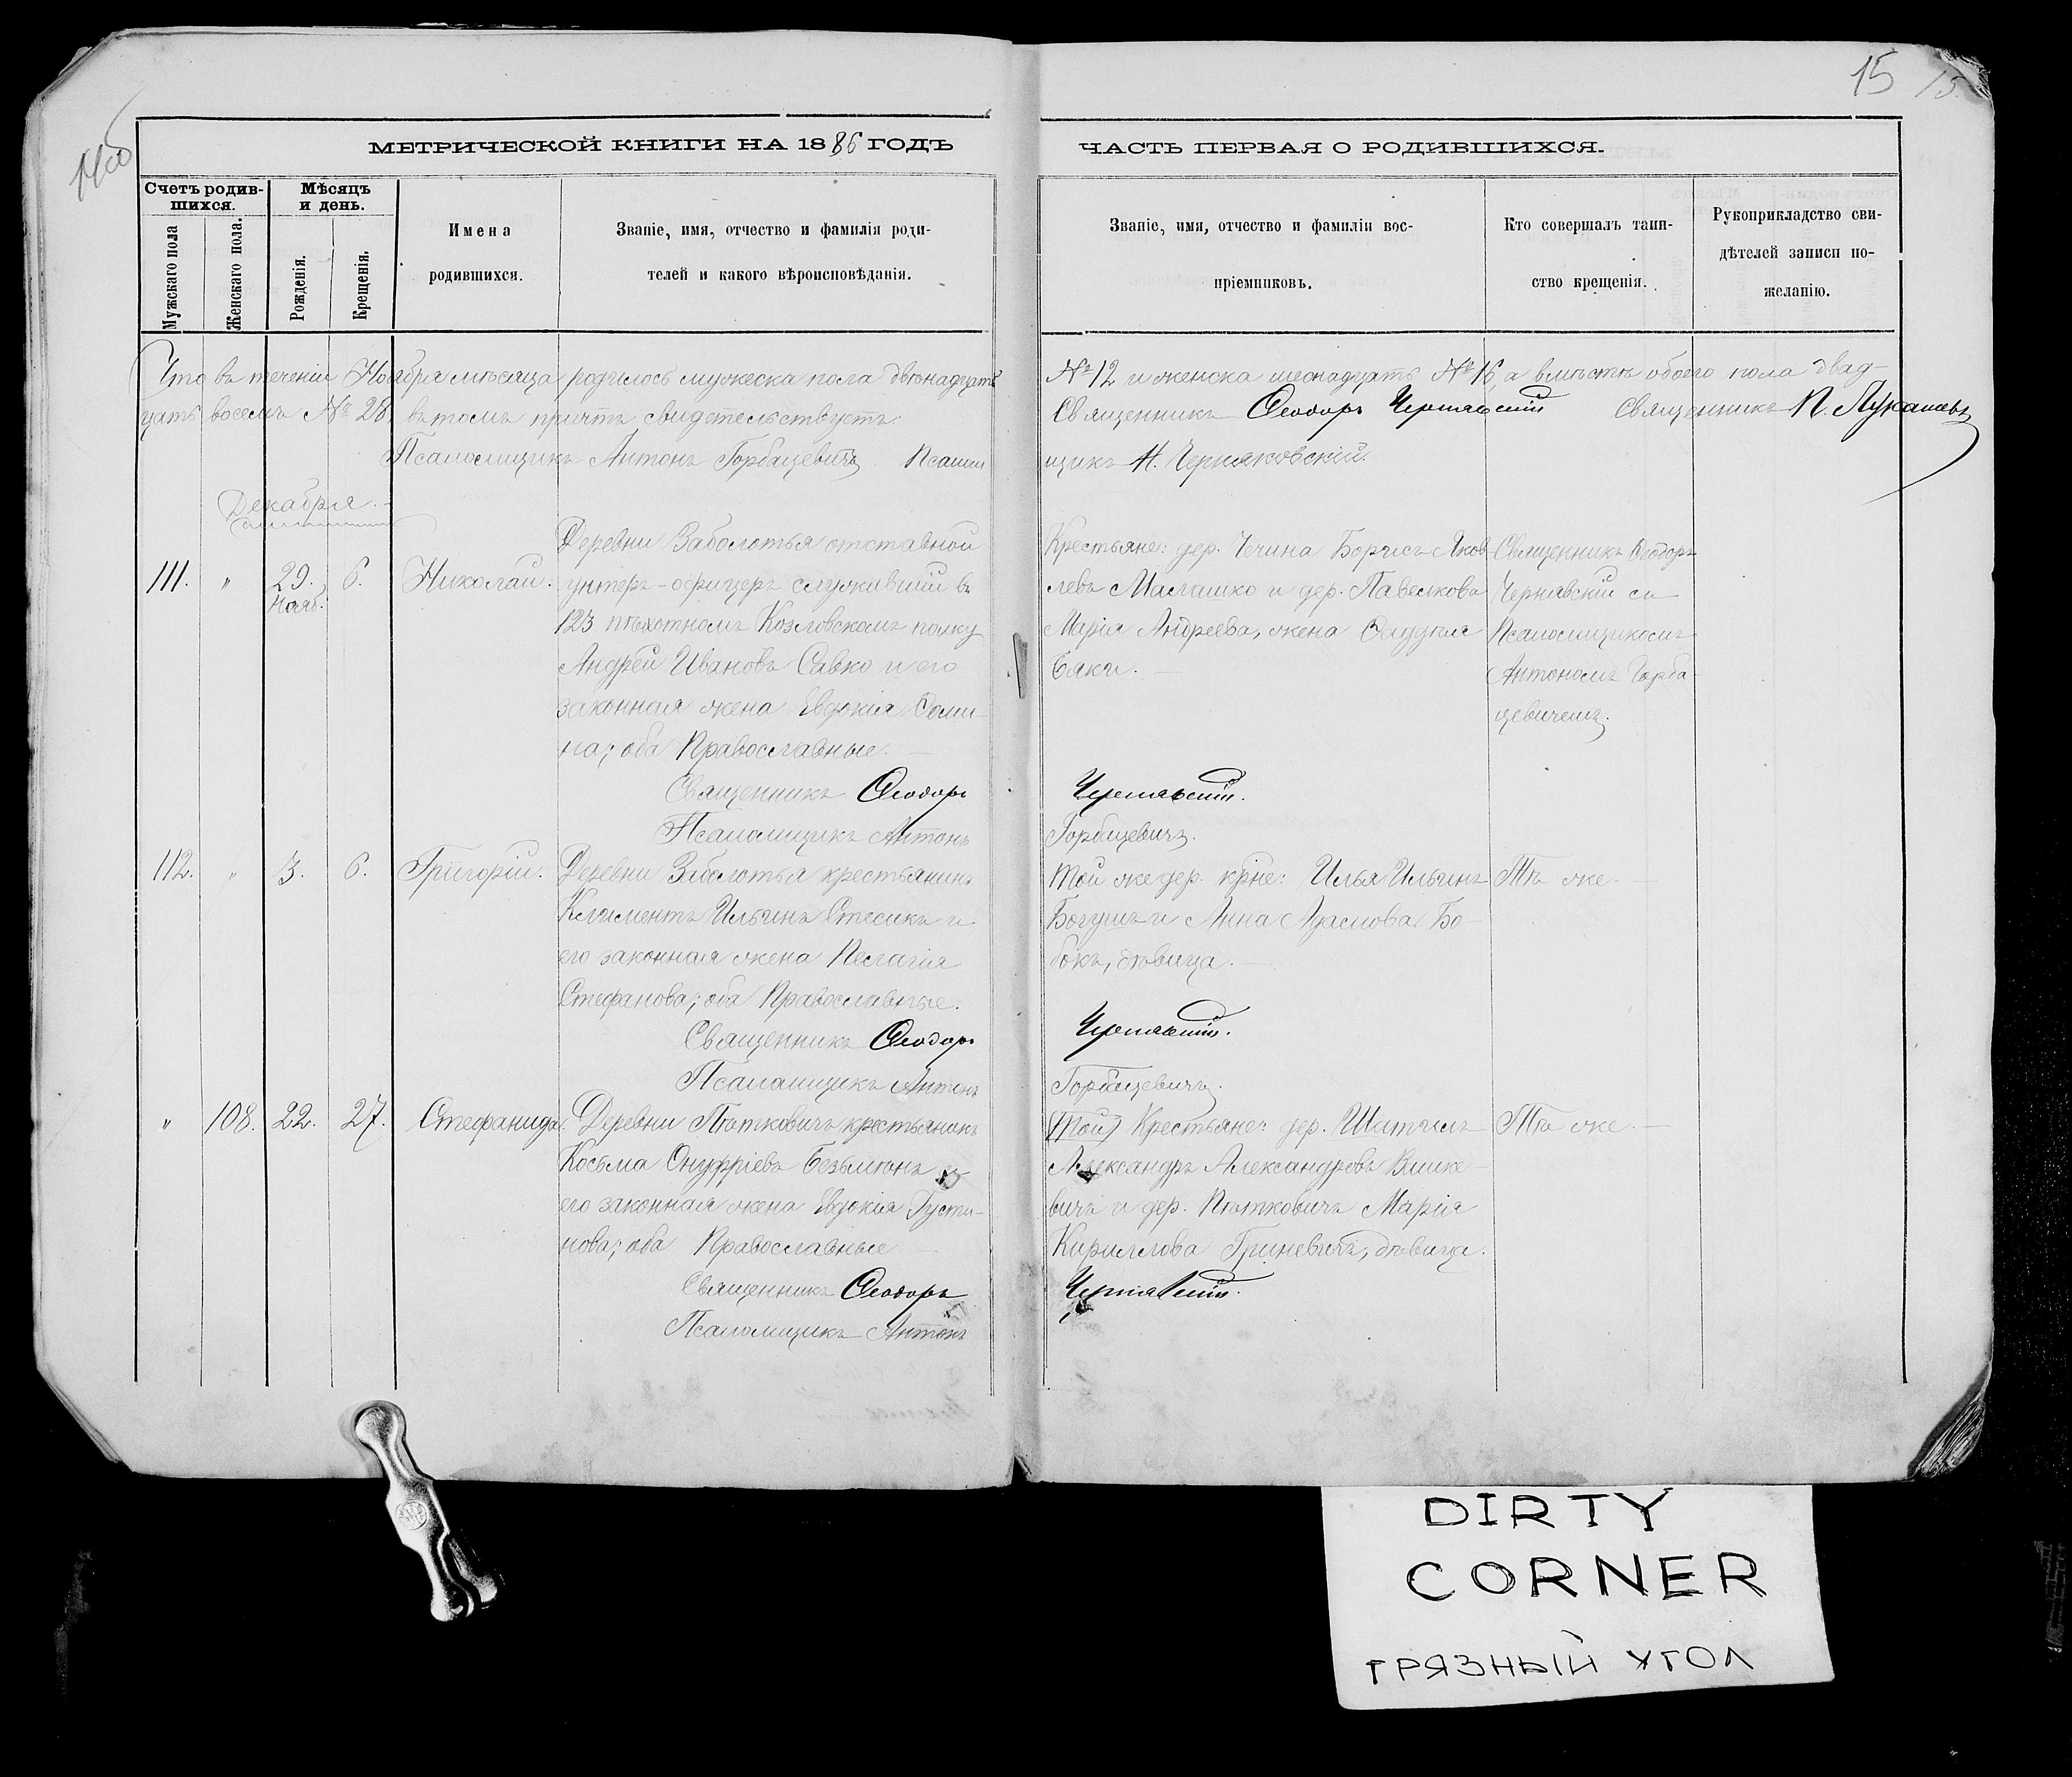 15 15.
14об
МЕТРИЧЕСКОЙ КНИГИ НА 1886 ГОДЪ
ЧАСТЬ ПЕРВАЯ О РОДИВШИХСЯ.
Счетъ родив-
шихся.
Мужскаго пола
Женскаго пола.
Мѣсяцъ
и день.
Рожденія.
Крещенія.
Имена
родившихся.
Званіе, имя, отчество и фамилія роди-
телей и какого вѣроисповѣданія.
Званіе, имя, отчество и фамиліи вос-
пріемниковъ.
Кто совершалъ таин-
ство крещенія.
Рукоприкладство сви-
дѣтелей записи по-
желанію.
Что въ теченіи Ноября мѣсяца родилось мужеска пола двѣнадцать № 12 и женска шеснадцать № 16, а вмѣстѣ обоего пола двад-
цать восемь № 28, въ томъ причтъ свидѣтельствуетъ. Священникъ Ѳеодоръ Чернявскій Священникъ П. Лукашевъ
Псаломщикъ Антонъ Горбацевичъ Псалом щикъ Н. Черняковскій.
Декабря.
111. " 29. Нояб. 6. Николай.
Деревни Заболотья отставной
унтеръ-офицеръ служившій въ
123 пѣхотномъ Козловскомъ полку
Андрей Ивановъ Савко и его
законная жена Евдокія Доми-
на; оба Православные.
Крестьяне: дер. Чечина Борисъ Яков
левъ Малашко и дер. Павелкова
Марія Андреева, жена
Бяки.
Священникъ Ѳеодоръ
Чернявскій съ
Псаломщикомъ
Антономъ Горба-
цевичемъ.
Священникъ Ѳеодоръ Чернявскій.
Псаломщикъ Антонъ Горбацевичъ.
112. " 3. 6. Григорій.
Деревни Заболотья крестьянинъ
Климентъ Ильинъ Стесикъ и
его законная жена Пелагія
Стефанова; оба Православные.
Той же дер. кр-не: Илья Ильинъ
Богушъ и Анна Адамова Бо-
бокъ, дѣвица.
Тѣ же.
Священникъ Ѳеодоръ Чернявскій.
Псаломщикъ Антонъ Горбацевичъ.
" 108. 22. 27. Стефанида.
Деревни Пѣтковичъ крестьянинъ
Косьма Онуфріевъ Безмѣнъ и
его законная жена Евдокія Густи-
нова; оба Православные
(Той) Крестьяне: дер. Шатилъ
Александръ Александровъ Вашке-
вичъ и дер. Пѣтковичъ Марія
Кириллова Гриневичъ, дѣвица.
Тѣ же.
Священникъ Ѳеодоръ Чернявскій.
Псаломщикъ Антонъ
DIRTY
CORNER
ГРЯЗНЫЙ УГОЛ